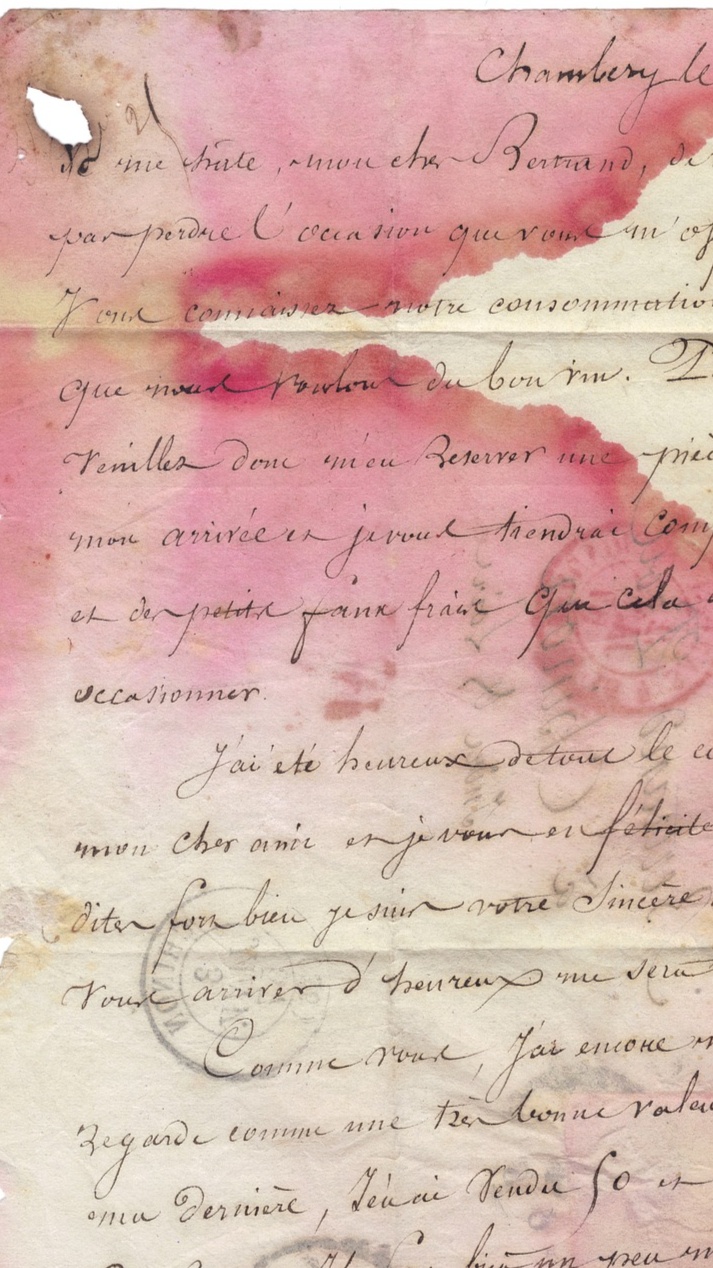 Chambery le
me hâte, mon cher Bertrand, de
pas perdre l'occasion que vous m'of
Vous connaissez notre consommatio
que nous voulons du bon vin.
Veuillez donc m'en Reserver une pièc
mon arrivée et je vous tiendrai comp
et des petits faux frais que cela
occasionner.
J'ai été heureux de tout le
mon cher ami et je vous en félicite
dites fort bien je suis votre Sincère
Vous arriver d'heureux me sera
Comme vous, J'ai encore
Regarde comme une très bonne valeu
ma dernière, J'en ai Vendu 50 et
bien un peu